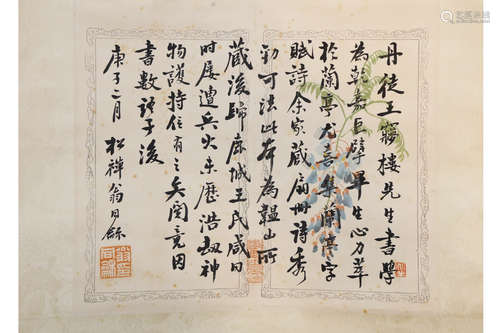 丹徒王夢樓先生書學
為乾嘉巨擘畢生心力萃
於蘭亭尤喜集蘭亭字
賦詩余家藏扇冊詩秀
勁可法此本為韞山所
藏後歸康城王氏咸同
時屢遭兵火未歷浩劫神
物護持信有之矣閱竟因
書數語于後
庚子二月 松禪翁同龢